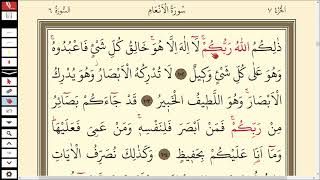 الجزء ٧ سورة الأنعام السورة ٦
ذٰلِكُمُ اللّٰهُ رَبُّكُمْۚ لَٓا اِلٰهَ اِلَّا هُوَۚ خَالِقُ كُلِّ شَيْءٍ فَاعْبُدُوهُۚ
وَهُوَ عَلٰى كُلِّ شَيْءٍ وَك۪يلٌ ﴿١٠٢﴾ لَا تُدْرِكُهُ الْاَبْصَارُۘ وَهُوَ يُدْرِكُ
الْاَبْصَارَۚ وَهُوَ اللَّط۪يفُ الْخَب۪يرُ ﴿١٠٣﴾ قَدْ جَٓاءَكُمْ بَصَٓائِرُ
مِنْ رَبِّكُمْۚ فَمَنْ اَبْصَرَ فَلِنَفْسِه۪ۚ وَمَنْ عَمِيَ فَعَلَيْهَاۜ
وَمَٓا اَنَا۬ عَلَيْكُمْ بِحَف۪يظٍ ﴿١٠٤﴾ وَكَذٰلِكَ نُصَرِّفُ الْاٰيَاتِ